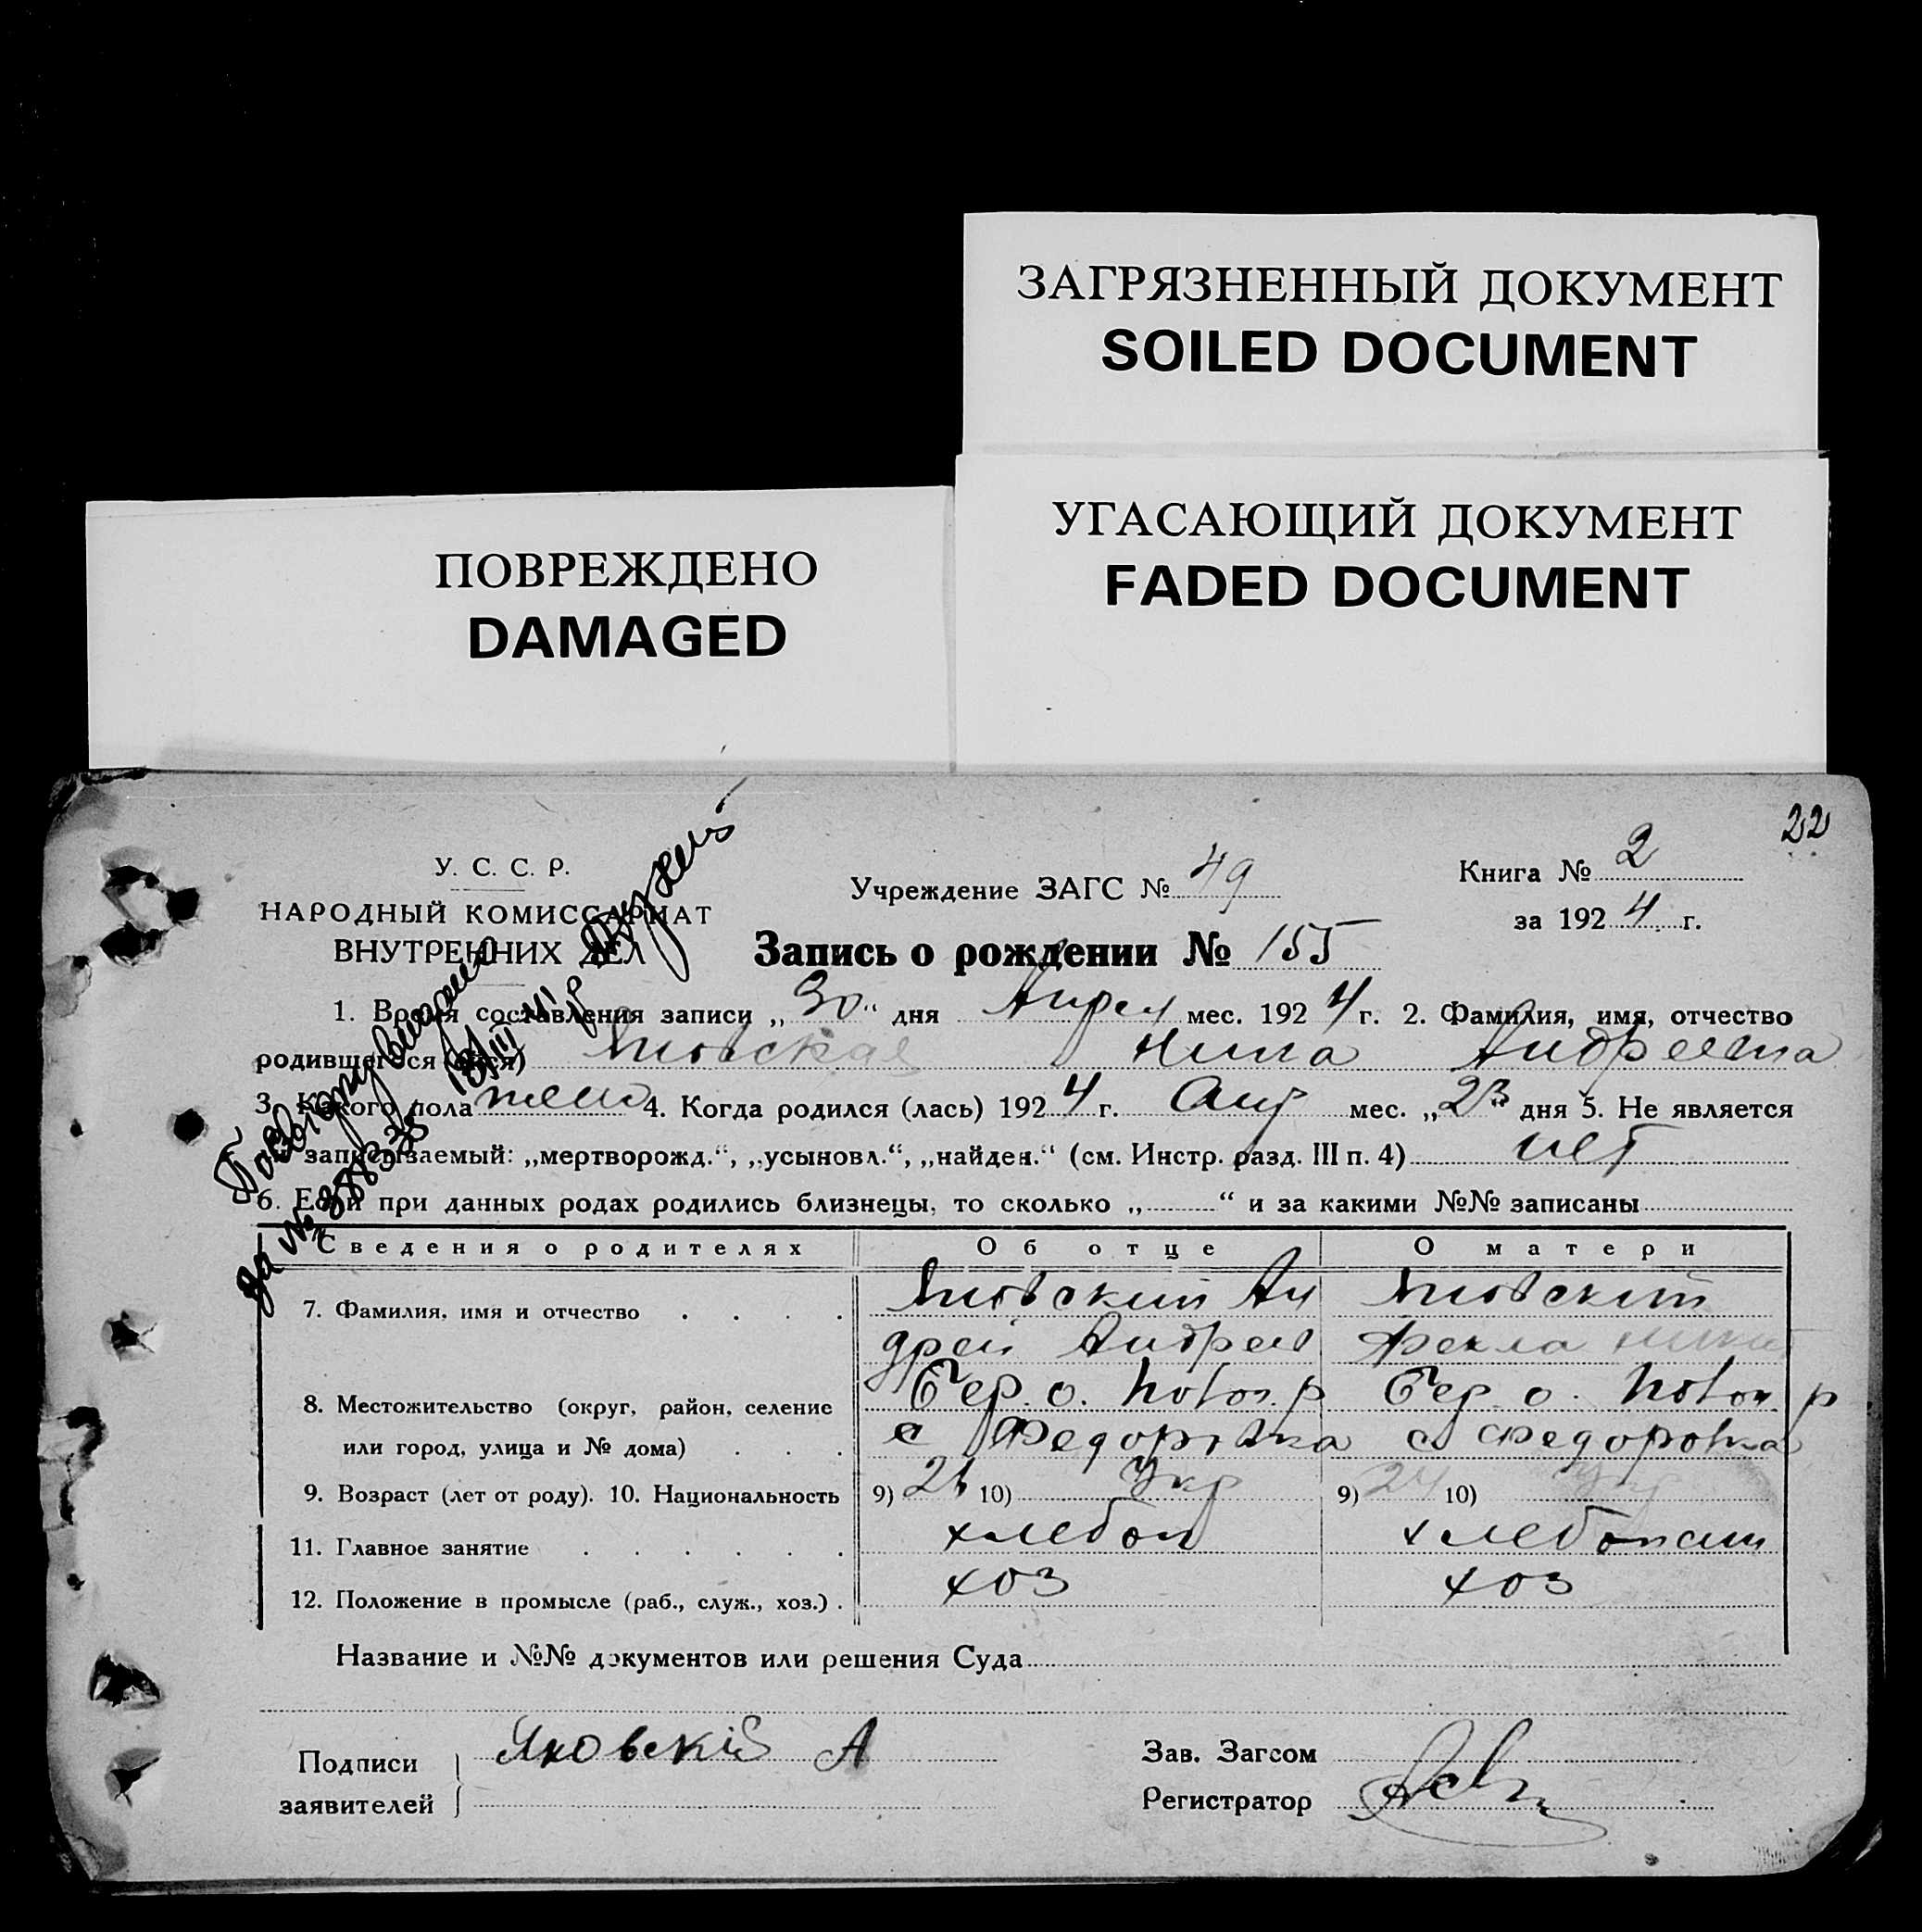 ЗАГРЯЗНЕННЫЙ ДОКУМЕНТ
SOILED DOCUMENT
УГАСАЮЩИЙ ДОКУМЕНТ
FADED DOCUMENT
ПОВРЕЖДЕНО
DAMAGED
22
У. С. С. Р.
НАРОДНЫЙ КОМИССАРИАТ
ВНУТРЕННИХ ДЕЛ
Учреждение ЗАГС № 49
Книга № 2
за 1924 г.
Запись о рождении № 155
1. Время составления записи „30“ дня Апрел мес. 1924 г. 2. Фамилия, имя, отчество
родившегося (йся) Нина Андреевна
3. Какого пола жен 4. Когда родился (лась) 1924 г. Апр мес. „23“ дня 5. Не является
ли записываемый: „мертворожд.“, „усыновл.“, „найден.“ (см. Инстр. разд. III п. 4) нет
6. Если при данных родах родились близнецы, то сколько „ “ и за какими №№ записаны
Повторну видано
за № 388335
Сведения о родителях Об отце О матери
7. Фамилия, имя и отчество . . . . Ан
дрей Андреев Фекла
8. Местожительство (округ, район, селение Бер. о. р Бер о. р
или город, улица и № дома) . . . с Федоровка с Федоровка
9. Возраст (лет от роду). 10. Национальность 9) 10) Укр 9) 24 10) Укр
11. Главное занятие . . . . . . хлебоп хлебопаш
12. Положение в промысле (раб., служ., хоз.) . хоз хоз
Название и №№ документов или решения Суда
Подписи
заявителей
Яковскій А
Зав. Загсом
Регистратор